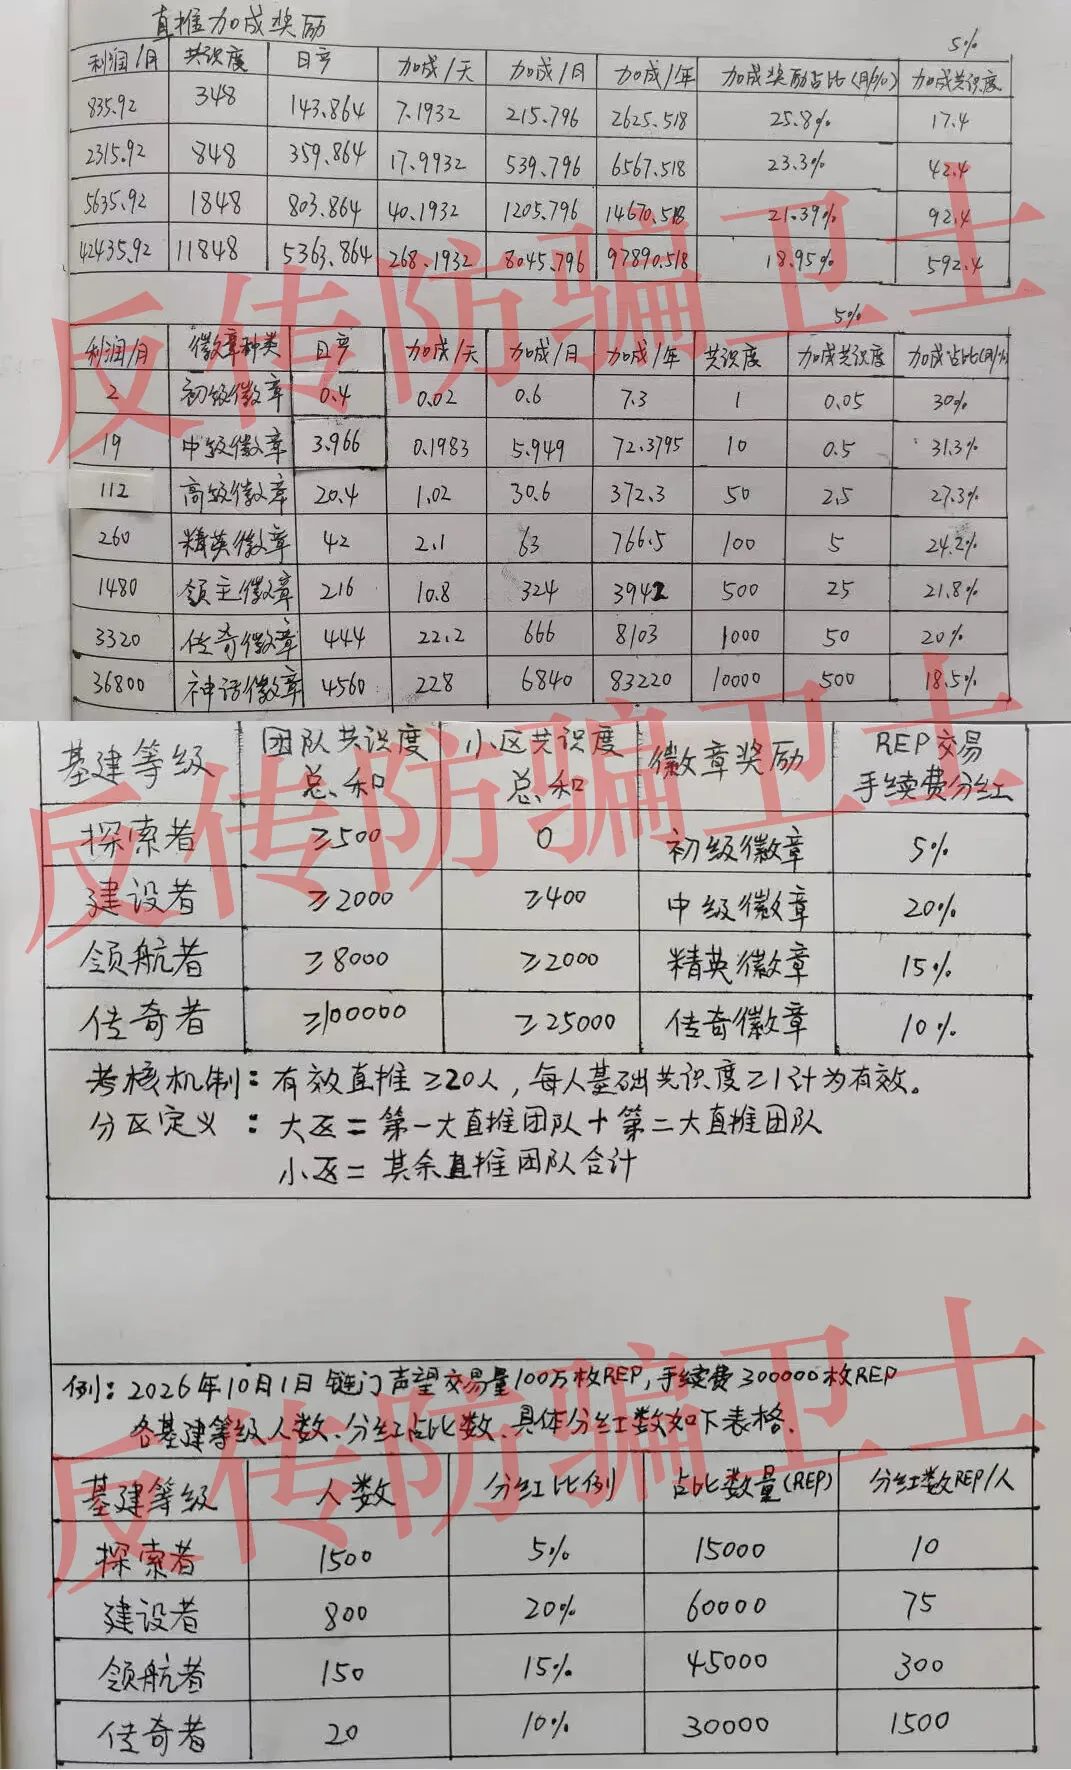 直推加成奖励
5%
利润/月 共识度 日产 加成/天 加成/月 加成/年 加成奖励占比(月/%) 加成共识度
835.92 348 143.864 7.1932 215.796 2625.518 25.8% 17.4
2315.92 848 359.864 17.9932 539.796 6567.518 23.3% 42.4
5635.92 1848 803.864 40.1932 1205.796 14670.518 21.39% 92.4
42435.92 11848 5363.864 268.1932 8045.796 97890.518 18.95% 592.4
5%
利润/月 徽章种类 日产 加成/天 加成/月 加成/年 共识度 加成共识度 加成占比(月/%)
2 初级徽章 0.4 0.02 0.6 7.3 1 0.05 30%
19 中级徽章 3.966 0.1983 5.949 72.3795 10 0.5 31.3%
112 高级徽章 20.4 1.02 30.6 372.3 50 2.5 27.3%
260 精英徽章 42 2.1 63 766.5 100 5 24.2%
1480 领主徽章 216 10.8 324 3942 500 25 21.8%
3320 传奇徽章 444 22.2 666 8103 1000 50 20%
36800 神话徽章 4560 228 6840 83220 10000 500 18.5%
反传防骗卫士
基建等级 团队共识度总和 小区共识度总和 徽章奖励 REP交易手续费分红
探索者 ≥500 0 初级徽章 5%
建设者 ≥2000 ≥400 中级徽章 20%
领航者 ≥8000 ≥2000 精英徽章 15%
传奇者 ≥100000 ≥25000 传奇徽章 10%
考核机制:有效直推≥20人,每人基础共识度≥1计为有效。
分区定义:大区=第一大直推团队+第二大直推团队
小区=其余直推团队合计
反传防骗卫士
例:2026年10月1日链门声望交易量100万枚REP,手续费300000枚REP
各基建等级人数、分红占比数、具体分红数如下表格.
基建等级 人数 分红比例 占比数量(REP) 分红数REP/人
探索者 1500 5% 15000 10
建设者 800 20% 60000 75
领航者 150 15% 45000 300
传奇者 20 10% 30000 1500
反传防骗卫士